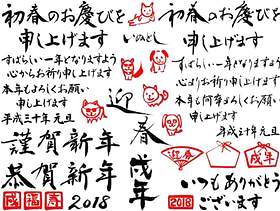 初春のお慶びを
申し上げます
すばらしい一年となりますよう
心からお祈り申し上げます
本年もよろしくお願い
申し上げます
平成三十年元旦
謹賀新年
恭賀新年
戌
福
春
2018
いぬどし
迎春
戌年
初春のお慶びを
申し上げます
すばらしい一年となりますよう
心よりお祈り申し上げます
本年も何卒よろしくお願い
申し上げます
平成三十年元旦
迎春
戌年
いつもありがとう
ございます
2018